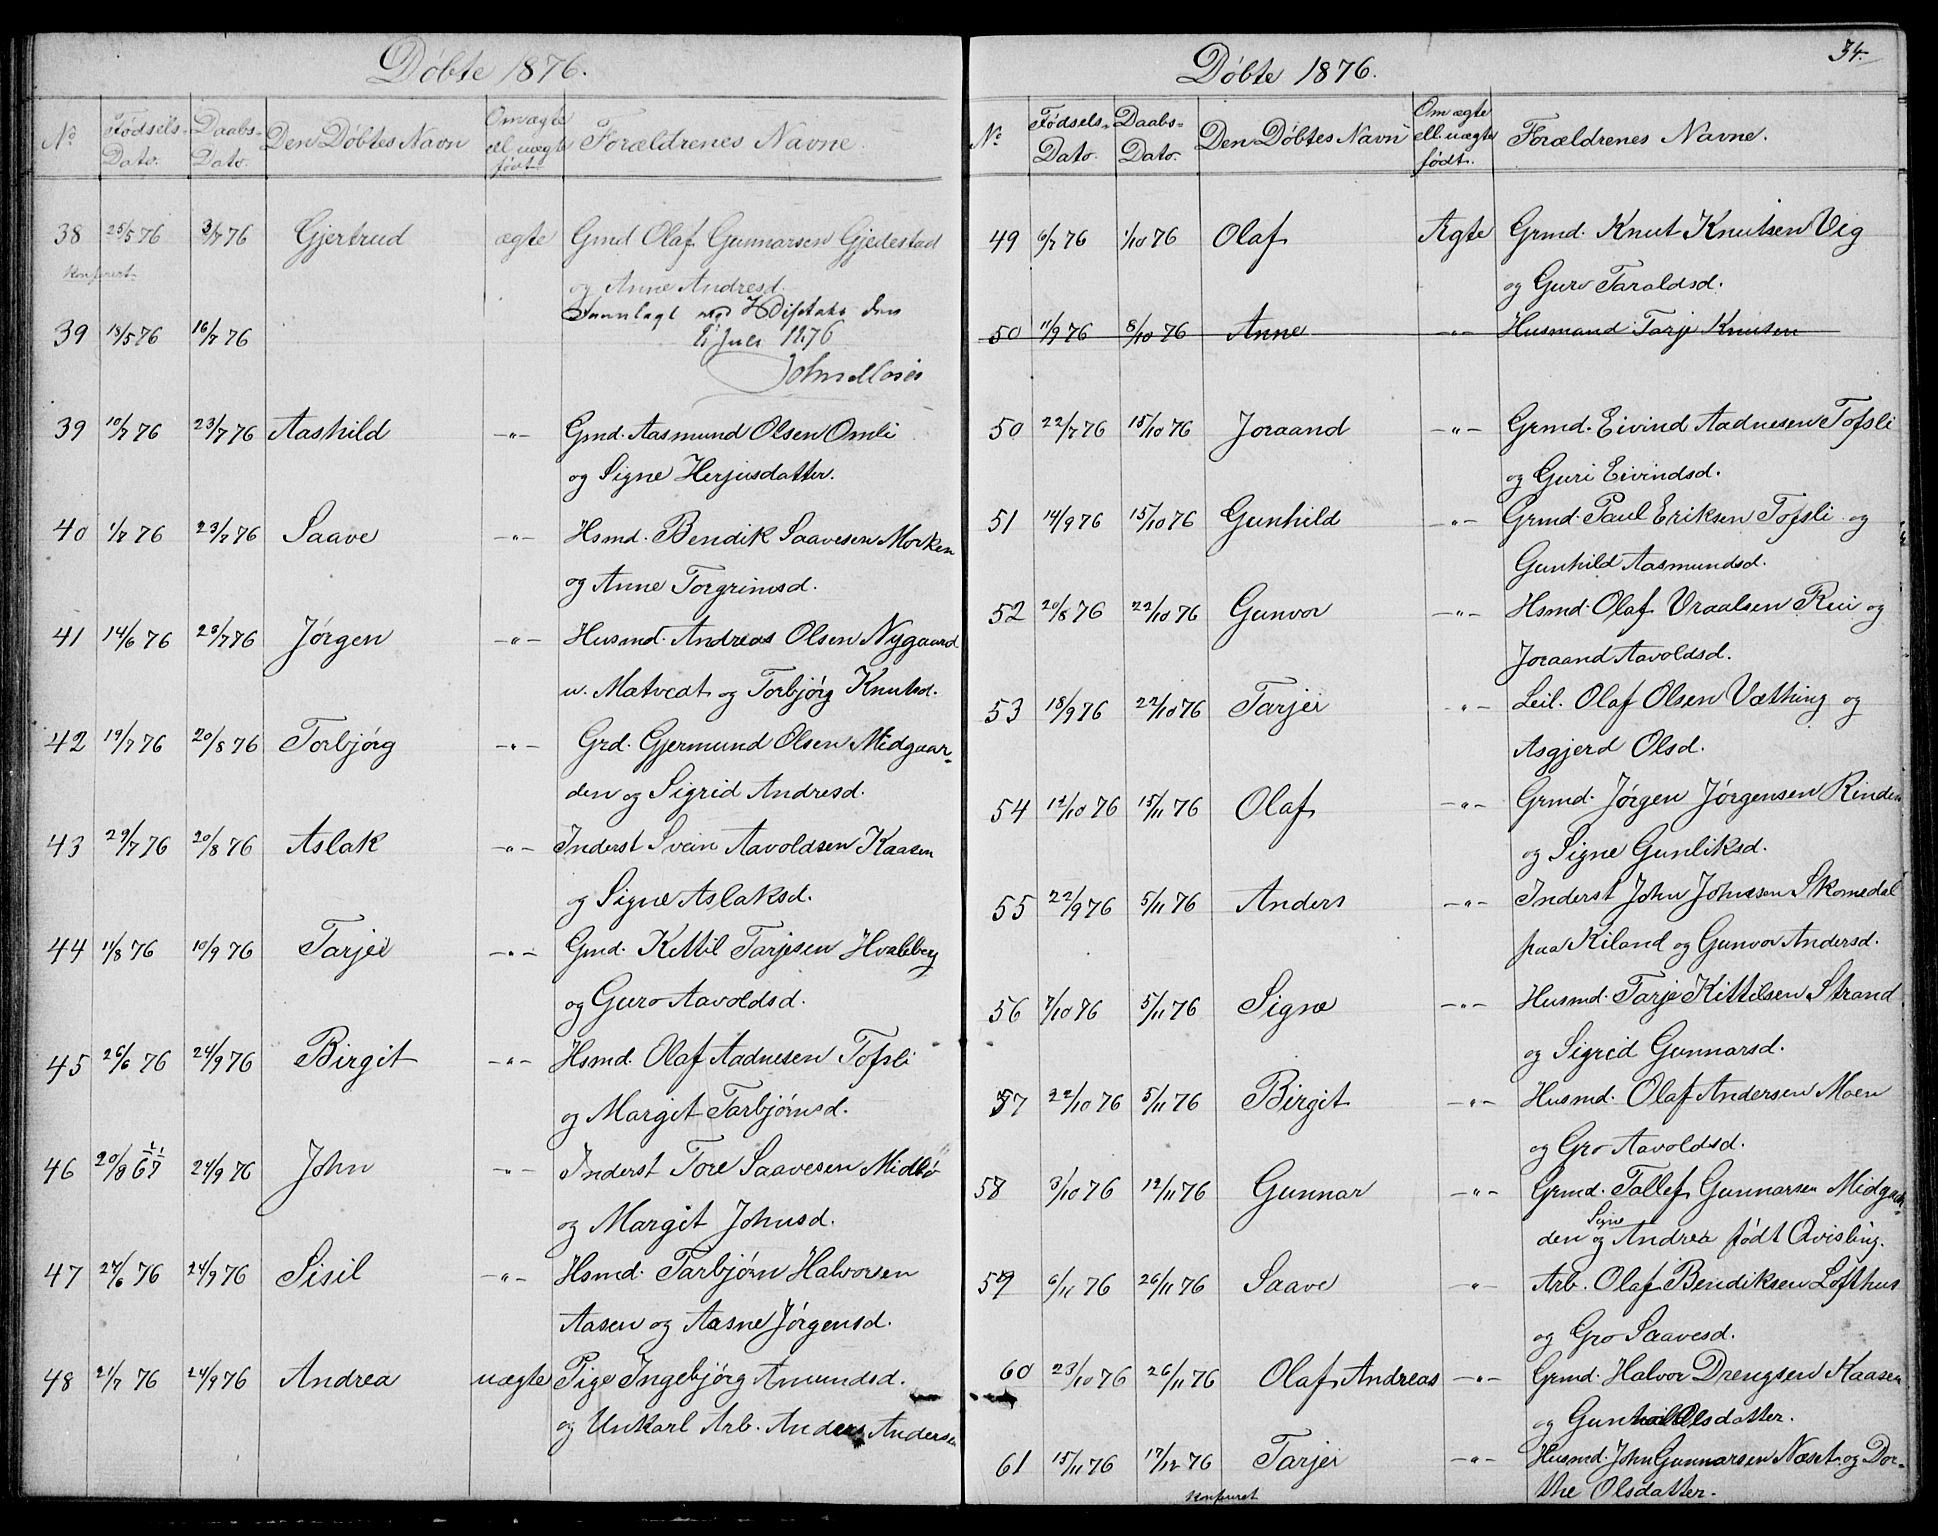 Døbte 1876.
No Fødsels-Dato. Daabs-Dato. Den Døbtes Navn Om ægte ell. uægte født. Forældrenes Navne.
38 25/5 76 3/7 76 Gjertrud ægte Gmd Olaf Gunnarsen Gjedestad
Konfereret
og Anne Andresd.
den
39 18/5 76 16/7 76 Juli 1876
39 10/7 76 23/7 76 Aashild -"- Gmd. Aasmund Olsen Omli
og Signe Herjusdatter.
40 1/7 76 23/7 76 Saave -"- Hsmd. Bendik Saavesen Morken
og Anne Torgrimsd.
41 14/6 76 23/7 76 Jørgen -"- Husmd. Andreas Olsen Nygaard
u. Matvedt og Torbjørg Knutsd.
42 19/7 76 20/8 76 Torbjørg -"- Grd. Gjermund Olsen Midgaar-
den og Sigrid Andresd.
43 29/7 76 20/8 76 Aslak -"- Inderst Svein Aavoldsen Kaasen
og Signe Aslaksd.
44 11/8 76 10/9 76 Tarjei -"- Gmd. Kittil Tarjesen Hvaleberg
og Guro Aavoldsd.
45 26/6 76 24/9 76 Birgit -"- Hsmd. Olaf Aadnesen Tofsli
og Margit Tarbjørnsd.
46 20/8 67 24/9 76 John -"- Inderst Tore Saavesen Midbø
og Margit Johnsd.
47 24/6 76 24/9 76 Sisil -"- Hsmd. Tarbjørn Halvorsen
Aasen og Aasne Jørgensd.
48 21/7 76 24/9 76 Andrea uægte Pige Ingebjørg Amundsd.
og Unkarl Arb. Anders Andersen
Døbte 1876.
34.
No Fødsels-Dato. Daabs-Dato. Den Døbtes Navn Om ægte ell. uægte født. Forældrenes Navne.
49 6/7 76 1/10 76 Olaf Ægte Grmd. Knut Knutsen Vig
og Guro Taraldsd.
50 11/9 76 8/10 76 Anne -"- Husmand Tarje Knutsen
50 22/7 76 15/10 76 Joraand -"- Grmd. Eivind Aadnesen Tofsli
og Guri Eivindsd.
51 14/9 76 15/10 76 Gunhild -"- Grmd. Paul Eriksen Tofsli og
Gunhild Aasmundsd.
52 20/8 76 22/10 76 Gunvor -"- Hsmd. Olaf Vraalsen Rui og
Joraand Aavoldsd.
53 18/9 76 22/10 76 Tarjei -"- Leil. Olaf Olsen Vætting og
Asgjerd Olsd.
54 12/10 76 15/11 76 Olaf -"- Grmd. Jørgen Jørgensen Rinden
og Signe Gunliksd.
55 22/9 76 5/11 76 Anders -"- Inderst John Johnsen Skomedal
paa Kiland og Gunvor Andersd.
56 7/10 76 5/11 76 Signe -"- Husmd. Tarje Kittilsen Strand
og Sigrid Gunnarsd.
57 22/10 76 5/11 76 Birgit -"- Husmd. Olaf Andersen Moen
og Gro Aavoldsd.
58 3/10 76 12/11 76 Gunnar -"- Grmd. Tallef Gunnarsen Midgaar-
Signe
den og Andrea født Qvisling.
59 6/11 76 26/11 76 Saave -"- Arb. Olaf Bendiksen Lofthus
og Gro Saavesd.
60 23/10 76 26/11 76 Olaf Andreas -"- Grmd. Halvor Drengsen Kaasen
og Olsdatter.
61 15/11 76 17/12 76 Tarjei -"- Husmd. John Gunnarsen Næset og Dor-
the Olsdatter.
Konfereret